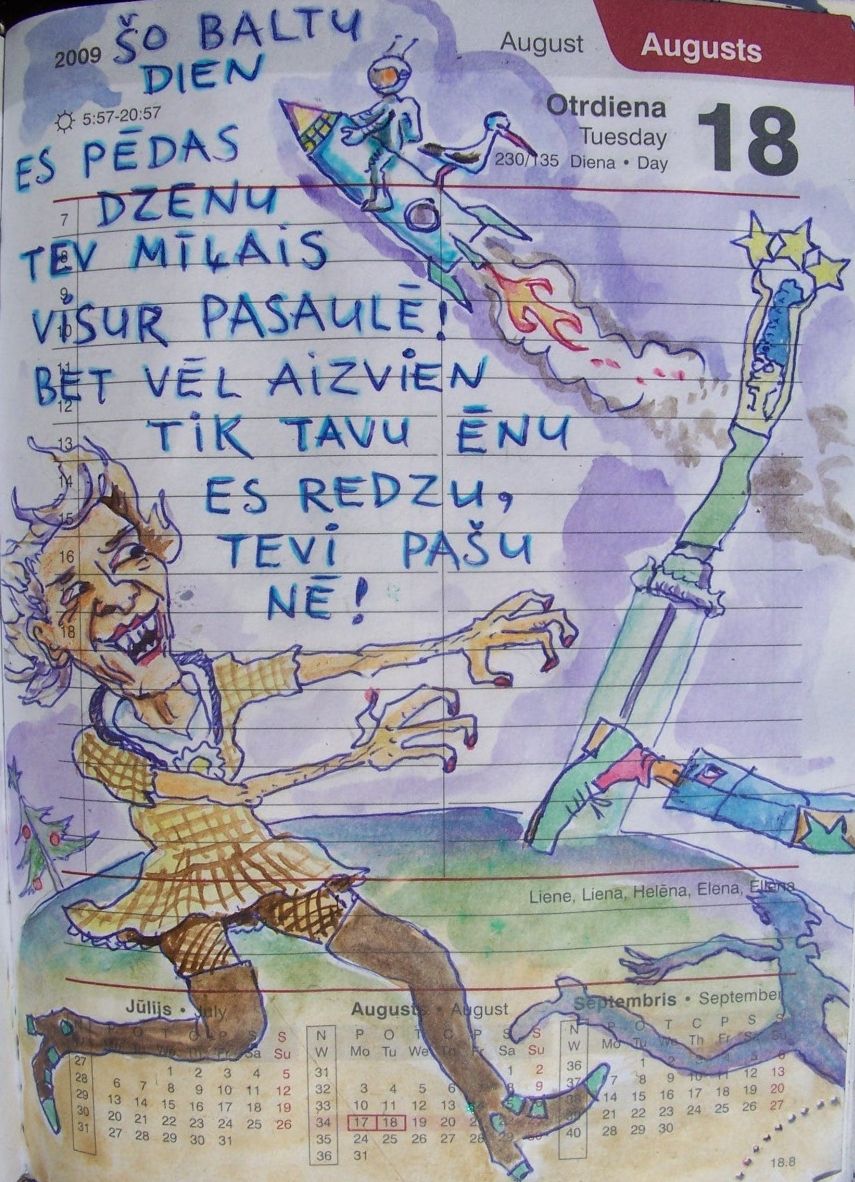 ŠO BALTU
DIEN
ES PĒDAS
DZENU
TEV MĪĻAIS
VISUR PASAULĒ!
BET VĒL AIZVIEN
TIK TAVU ĒNU
ES REDZU,
TEVI PAŠU
NĒ!
2009
August
Augusts
5:57-20:57
Otrdiena
Tuesday
18
230/135 Diena • Day
7
8
9
10
11
12
13
14
15
16
18
Liene, Liena, Helēna, Elena, Ellena
Jūlijs • July
S
Su
27
28 1 2 3 4 5
29 6 7 8 9 10 11 12
30 13 14 15 16 17 18 19
31 20 21 22 23 24 25 26
27 28 29 30 31
Augusts • August
N P O T C P S S
W Mo Tu We Th Fr Sa Su
31 1 2
32 3 4 5 6 8 9
33 10 11 12 13
34 17 18 19 20
35 24 25 26
36 31
Septembris • September
N P O T C P S S
W Mo Tu We Th Fr Sa Su
36 1 2 3 4 5 6
37 7 8 9 10 11 12 13
38 14 15 16 17 18 19 20
39 21 22 23 24 25 26 27
40 28 29 30
18.8